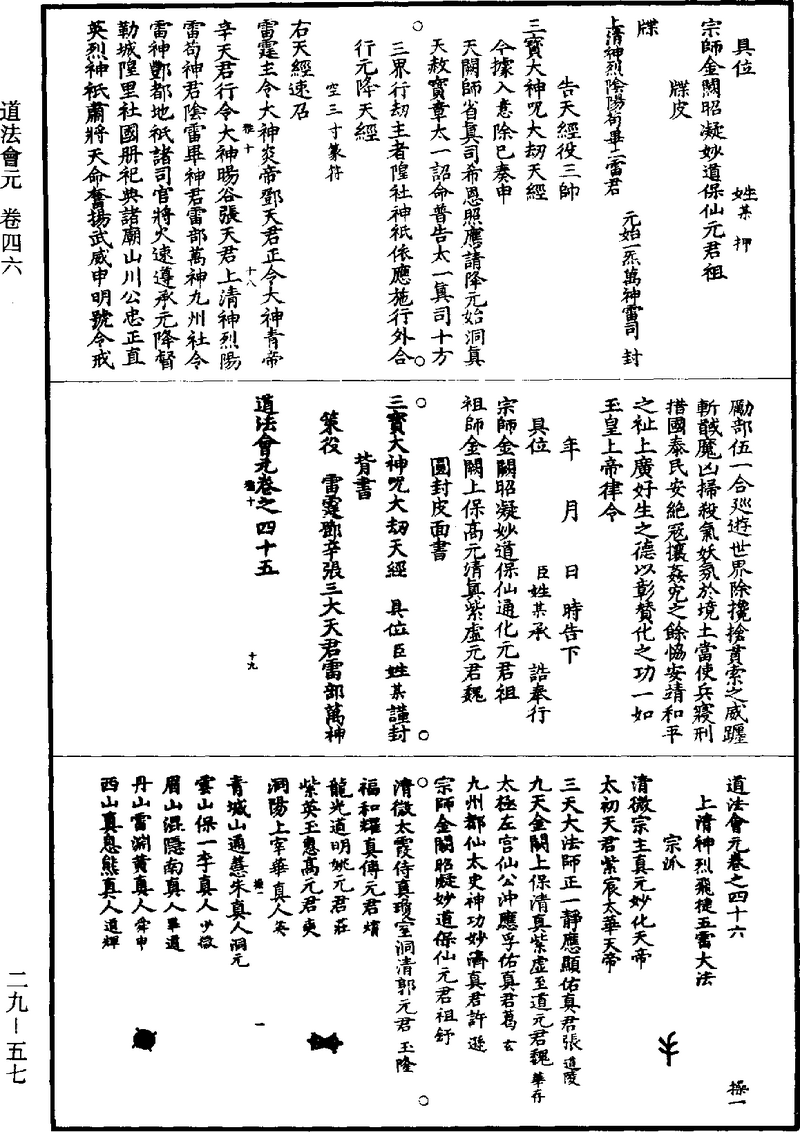 具位　姓某　押
宗師金闕昭凝妙道保仙元君祖
牒皮
元始一炁萬神雷司　封
牒
上清神烈陰陽苟畢二雷君
告天經役三帥
三寶大神呪大劫天經
令據入意除已奏申
天闕師省真司希恩照應請降元始洞真
天赦寶章太一詔命普告太一真司十方
三界行劫主者隍社神祇依應施行外合
行元降天經
空三寸篆符
右天經速召
雷霆主令大神炎帝鄧天君正令大神青帝
辛天君行令大神暘谷張天君上清神烈陽
雷苟神君陰雷畢神君雷部萬神九州社令
雷神酆都地祇諸司官將火速遵承元降督
勒城隍里社國册祀典諸廟山川公忠正直
英烈神祇肅將天命奮揚武威申明號令戒
勵部伍一合巡遊世界除攙搶貫索之威躔
斬馘魔凶掃殺氣妖氛於境土當使兵寢刑
措國泰民安絶寇攘姦宄之餘恊安靖和平
之祉上廣好生之德以彰贊化之功一如
玉皇上帝律令
年　月　日　時告下
具位　臣姓某承　誥奉行
宗師金闕昭凝妙道保仙通化元君祖
祖師金闕上保高元清真紫虛元君魏
圓封皮面書
三寶大神呪大劫天經　具位臣姓某謹封
背書
策役　雷霆鄧辛張三大天君雷部萬神
道法會元卷之四十五
道法會元卷之四十六
操一
上清神烈飛捷五雷大法
宗派
清微宗主真元妙化天帝
太初天君紫宸太華天帝
三天大法師正一靜應顯佑真君張道陵
九天金闕上保清真紫虛至道元君魏華存
太極左宮仙公沖應孚佑真君葛玄
九州都仙太史神功妙濟真君許遜
宗師金闕昭凝妙道保仙元君祖舒
清微太霞侍真瓊室洞清郭元君玉隆
福和耀真傅元君㷷
龍光道明姚元君莊
紫英玉惠高元君奭
洞陽上宰華真人英
青城山通慧朱真人洞元
雲山保一李真人少微
眉山混隱南真人畢道
丹山雷淵黄真人舜申
西山真息熊真人道輝
道法會元　卷四六
二九—五七